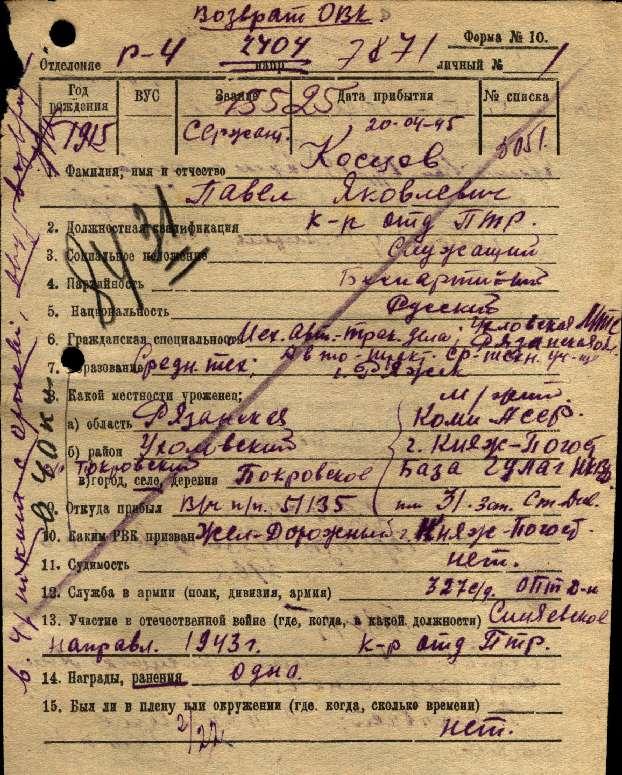 Возврат ОВК
Форма № 10.
Отделение Р-4 2404 7871 личный № 1
напр.
Год рождения ВУС Звание Дата прибытия № списка
5525
1915 Сержант. 20-04-45 3051.
1. Фамилия, имя и отчество Косцов
Павел Яковлевич
2. Должностная квалификация к-р отд ПТР.
3. Социальное положение Служащий
4. Партийность
5. Национальность Русский
6. Гражданская специальность Мех. авт.-трак. дела; Ухоловская МТС Рязанская об.
7. Образование Средн. тех; Авто-тракт. ср-техн. уч-ще
г. Ряжск
8. Какой местности уроженец; м/жит.
а) область Рязанская Коми АССР.
б) район Ухоловский г. Княж-Погост
Покровский
в) город, село, деревня Покровское База ГУЛАГ НКВД
9. Откуда прибыл В/ч п/п. 51135 31. зап. Ст. Див.
10. Каким РВК призван Жел-Дорожный г. Княж-Погост.
11. Судимость нет.
12. Служба в армии (полк, дивизия, армия) 327 с/д. ОПТД-н
13. Участие в отечественной войне (где, когда, в какой должности) Синявское
направл. 1943 г. к-р отд ПТР.
14. Награды, ранения одно.
15. Был ли в плену или окружении (где, когда, сколько времени)
2/22. нет.
8431